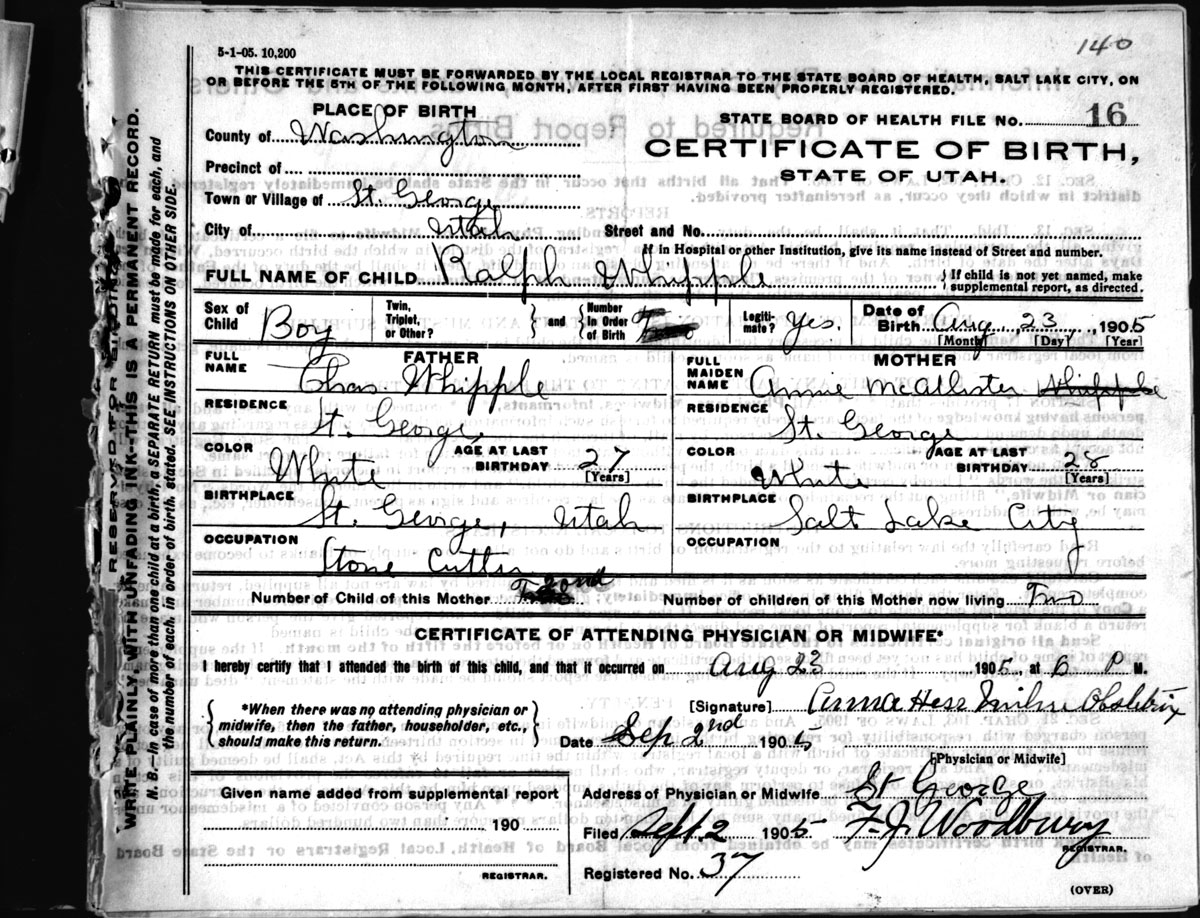 140
5-1-05. 10,200
THIS CERTIFICATE MUST BE FORWARDED BY THE LOCAL REGISTRAR TO THE STATE BOARD OF HEALTH, SALT LAKE CITY, ON
OR BEFORE THE 5TH OF THE FOLLOWING MONTH, AFTER FIRST HAVING BEEN PROPERLY REGISTERED.
PLACE OF BIRTH
STATE BOARD OF HEALTH FILE NO. 16
County of Washington
CERTIFICATE OF BIRTH,
STATE OF UTAH.
Precinct of
Town or Village of St. George
City of Utah Street and No.
If in Hospital or other Institution, give its name instead of Street and number.
FULL NAME OF CHILD Ralph Whipple { If child is not yet named, make supplemental report, as directed.
Sex of Child Boy Twin, Triplet, or Other? } and { Number in Order of Birth Legiti-mate? Yes. Date of Birth Aug 23, 1905
[Month] [Day] [Year]
FATHER
FULL NAME Chas Whipple
MOTHER
FULL MAIDEN NAME Annie McAllister Whipple
RESIDENCE St. George,
RESIDENCE St. George
COLOR White AGE AT LAST BIRTHDAY 27 [Years]
COLOR White AGE AT LAST BIRTHDAY 28 [Years]
BIRTHPLACE St. George, Utah
BIRTHPLACE Salt Lake City
OCCUPATION Stone Cutter
OCCUPATION
Number of Child of this Mother 2nd Number of children of this Mother now living Two
CERTIFICATE OF ATTENDING PHYSICIAN OR MIDWIFE*
I hereby certify that I attended the birth of this child, and that it occurred on Aug 23 1905, at 6 P M.
{ *When there was no attending physician or midwife, then the father, householder, etc., should make this return. }
[Signature] Anna Hess
Date Sep 2nd 1905
[Physician or Midwife]
Given name added from supplemental report
190
REGISTRAR.
Address of Physician or Midwife St George
Filed Sept. 2 1905 F. J. Woodbury
REGISTRAR.
Registered No. 37
(OVER)
RESERVED FOR BINDING
WRITE PLAINLY, WITH UNFADING INK—THIS IS A PERMANENT RECORD.
N. B.—In case of more than one child at a birth, a SEPARATE RETURN must be made for each, and
the number of each, in order of birth, stated. SEE INSTRUCTIONS ON OTHER SIDE.